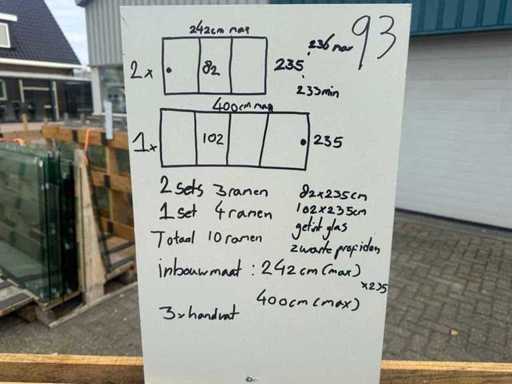 93
242cm max
236 max
2x 82 235
233min
400cm max
1x 102 235
2 sets 3 ramen 82x235cm
1 set 4 ramen 102x235cm
Totaal 10 ramen getint glas
zwarte profielen
inbouwmaat : 242 cm (max)
x235
400cm (max)
3x handvat